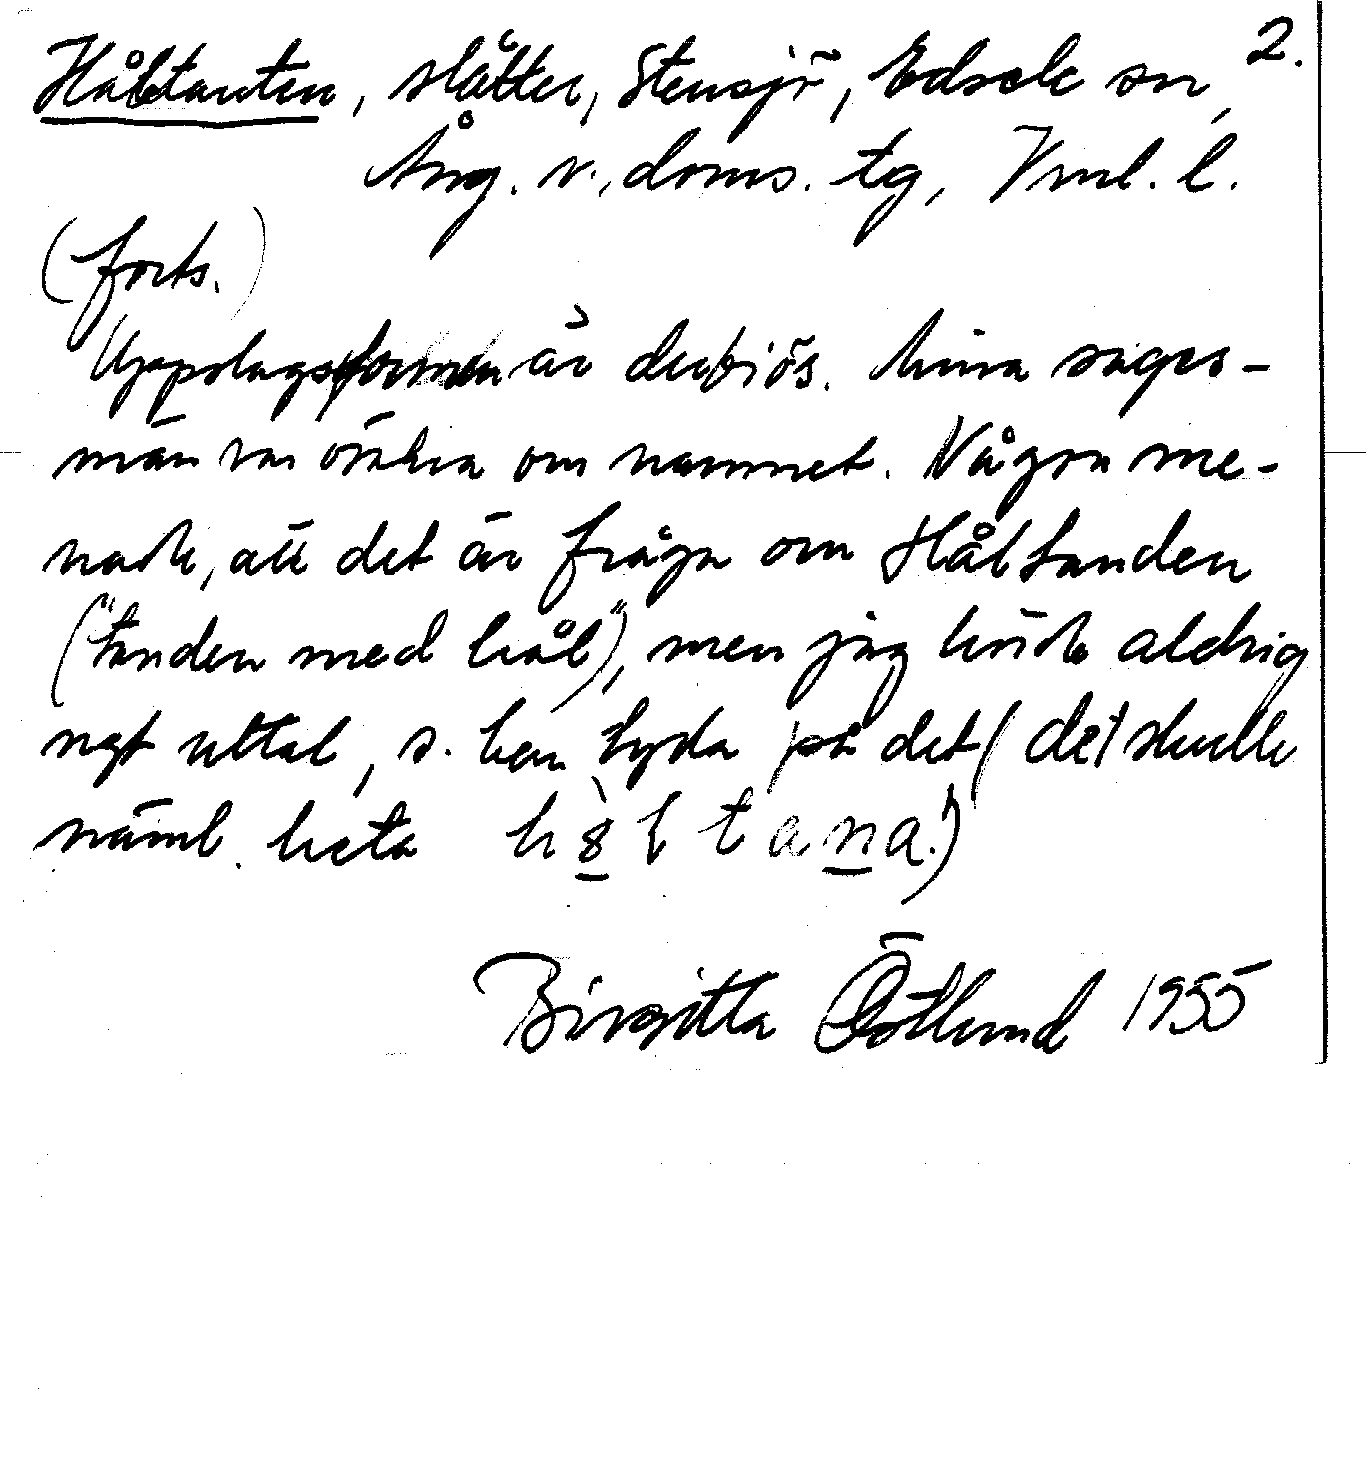 Håltanten, slåtter, Stensjö, Edsele sn, 2.
Ång. v., doms. tg, Vnl. l.
(forts.)
Uppslagsformen är dubiös. Mina sages-
män var osäkra om namnet. Några me-
nade, att det är fråga om Håltanden
("tanden med hål"), men jag hörde aldrig
ngt uttal, s. kan tyda på det (det skulle
näml. heta
Birgitta Östlund 1955